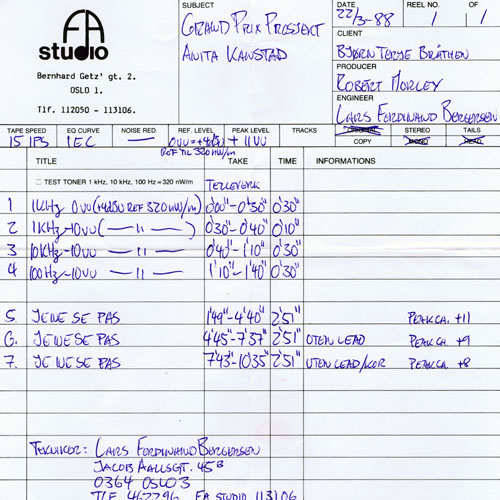 FA
studio
Bernhard Getz' gt. 2.
OSLO 1.
Tlf. 112050 - 113106.
SUBJECT
GRAND PRIX PROSJEKT
ANITA KANSTAD
DATE 22/3-88 REEL NO. 1 OF 1
CLIENT
BJØRN TERJE BRÅTHEN
PRODUCER
ROBERT MORLEY
ENGINEER
LARS FERDINAND BERGERSEN
TAPE SPEED EQ CURVE NOISE RED. REF. LEVEL PEAK LEVEL TRACKS ORIGINAL STEREO TAILS
15 IPS IEC — 0VU=+4dBU + 11VU COPY MONO READ
REF TIL 320 nW/m
TITLE TAKE TIME INFORMATIONS
TEST TONER 1 kHz, 10 kHz, 100 Hz = 320 nW/m TELLEVERK
1 1KHz 0VU (+4dBU REF 320nW/m) 0'00"-0'30" 0'30"
2 1KHz -10VU ( — 11 — ) 0'30-0'40" 0'10"
3 10KHz -10VU — 11 — 0'40-1'10" 0'30"
4 100Hz -10VU — 11 — 1'10"-1'40" 0'30"
5. JENE SE PAS 1'49"-4'40" 2'51" PEAK CA. +11
6. JE NE SE PAS 4'45"-7'37" 2'51" UTEN LEAD PEAK CA +9
7. JE NE SE PAS 7'43-10'35" 2'51" UTEN LEAD/KOR PEAK CA. +8
TEKNIKER: LARS FERDINAND BERGERSEN
JACOB AALLSGT. 45B
0364 OSLO 3
TLF 462796 FA STUDIO 113106